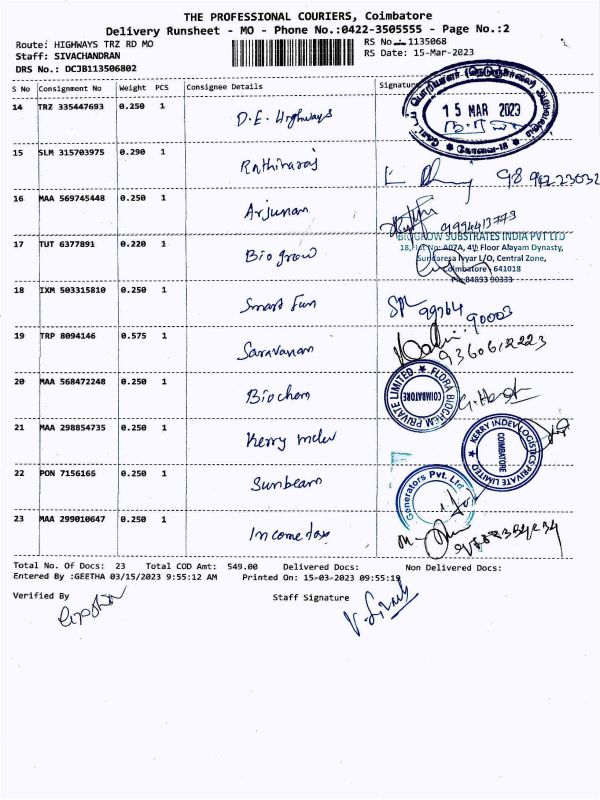 THE PROFESSIONAL COURIERS, Coimbatore
Delivery Runsheet - MO - Phone No.:0422-3505555 - Page No.:2
Route: HIGHWAYS TRZ RD MO
RS No.: 1135068
Staff: SIVACHANDRAN
RS Date: 15-Mar-2023
DRS No.: DCJB113506802
S No Consignment No Weight PCS Consignee Details Signature
14 TRZ 335447693 0.250 1 D.E. Highways
15 MAR 2023
கோவை-18
15 SLM 315703975 0.290 1 Rathinaraj
16 MAA 569745448 0.250 1 Arjunan
9994413773
17 TUT 6377891 0.220 1 Biogrow
BIOGROW SUBSTRATES INDIA PVT LTD
18, Flat No: A07A, 4th Floor Alayam Dynasty,
Sundaresa Iyyar L/O, Central Zone,
Coimbatore - 641018
Ph: 84893 90333
18 IXM 503315810 0.250 1 Smart Fun
99764 90003
19 TRP 8094146 0.575 1 Saravanan
20 MAA 568472248 0.250 1 Biochem
FLORA BIOCHEM PRIVATE LIMITED
COIMBATORE
21 MAA 298854735 0.250 1 Kerry Indev
KERRY INDEV LOGISTICS PRIVATE LIMITED
COIMBATORE
22 PON 7156165 0.250 1 Sunbeam
Generators Pvt. Ltd
23 MAA 299010647 0.250 1 Income tax
Total No. Of Docs: 23 Total COD Amt: 549.00 Delivered Docs: Non Delivered Docs:
Entered By :GEETHA 03/15/2023 9:55:12 AM Printed On: 15-03-2023 09:55:19
Verified By Staff Signature